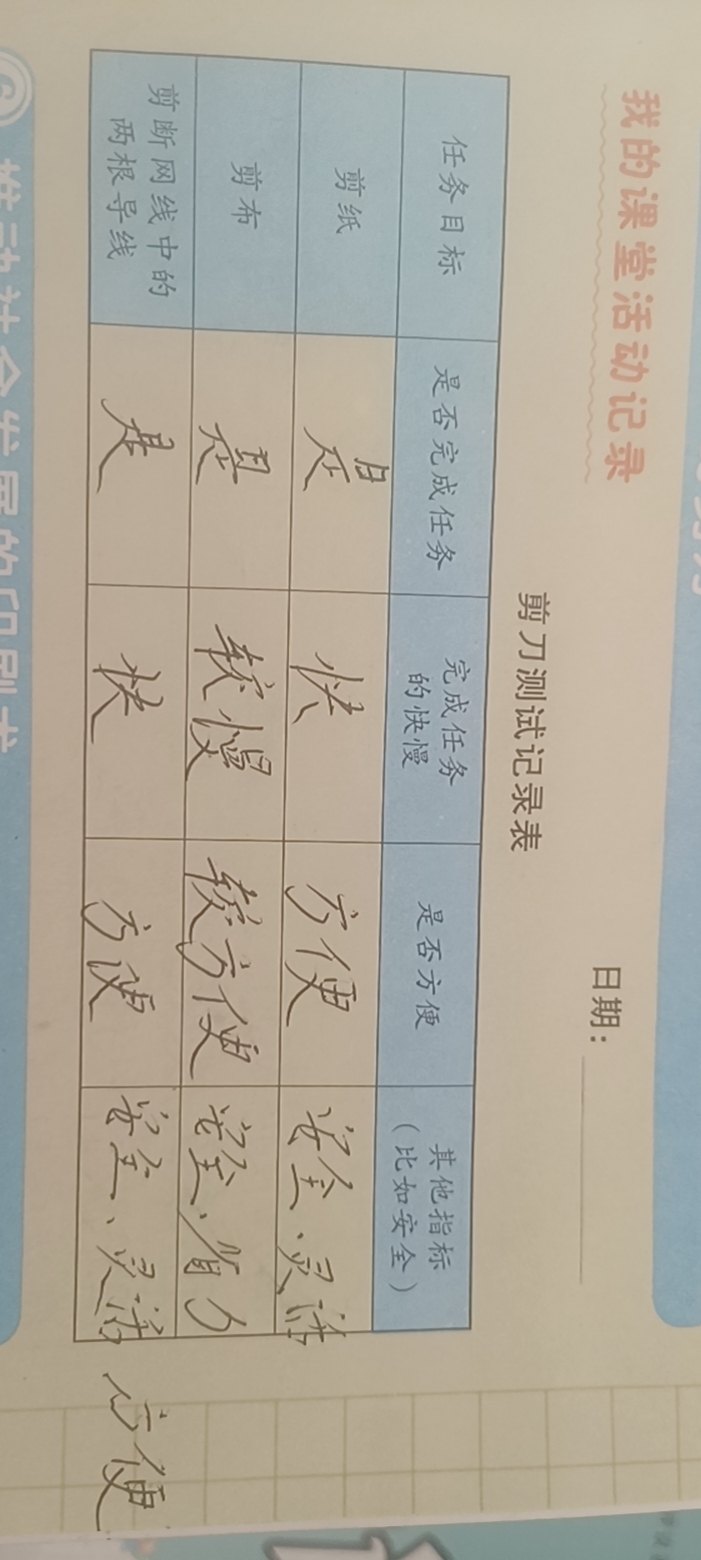 我的课堂活动记录
日期：
剪刀测试记录表
任务目标 是否完成任务 完成任务的快慢 是否方便 其他指标（比如安全）
剪纸 是 快 方便 安全、灵活
剪布 是 较慢 较方便 安全、省力
剪断网线中的两根导线 是 快 方便 安全、灵活 方便
推动社会发展的印刷术